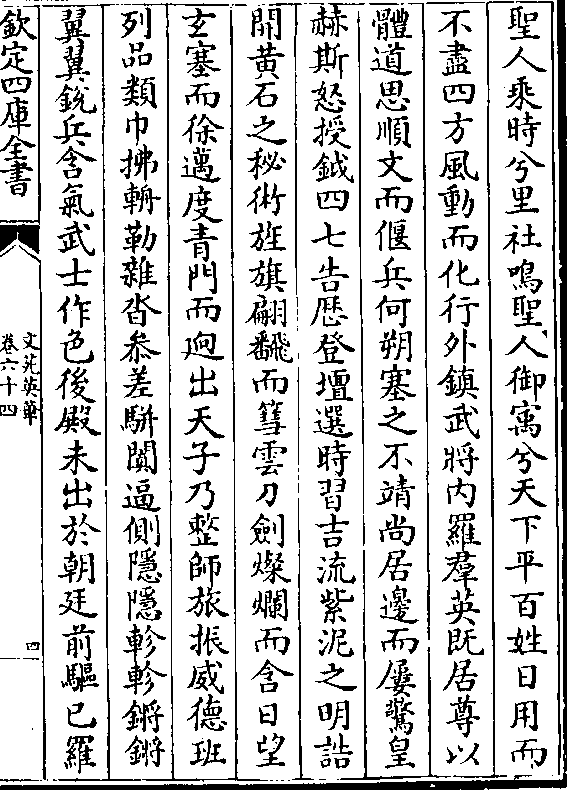 聖人乘時兮里社鳴聖人御寓兮天下平百姓日用而
不盡四方風動而化行外鎮武將内羅羣英既居尊以
體道思順文而偃兵何朔塞之不靖尚居邊而屢驚皇
赫斯怒授鉞四七告歴登壇選時習吉流紫泥之明誥
開黄石之秘術旌旗翩翻而篲雲刀劍燦爛而含日望
玄塞而徐邁度青門而逈出天子乃整師旅振威德班
列品類巾拂輈勒雜沓叅差駢闐逼側隱隱軫軫鏘鏘
翼翼銳兵含氣武士作色後殿未出於朝廷前驅已羅
欽定四庫全書
文苑英華
卷六十四
四